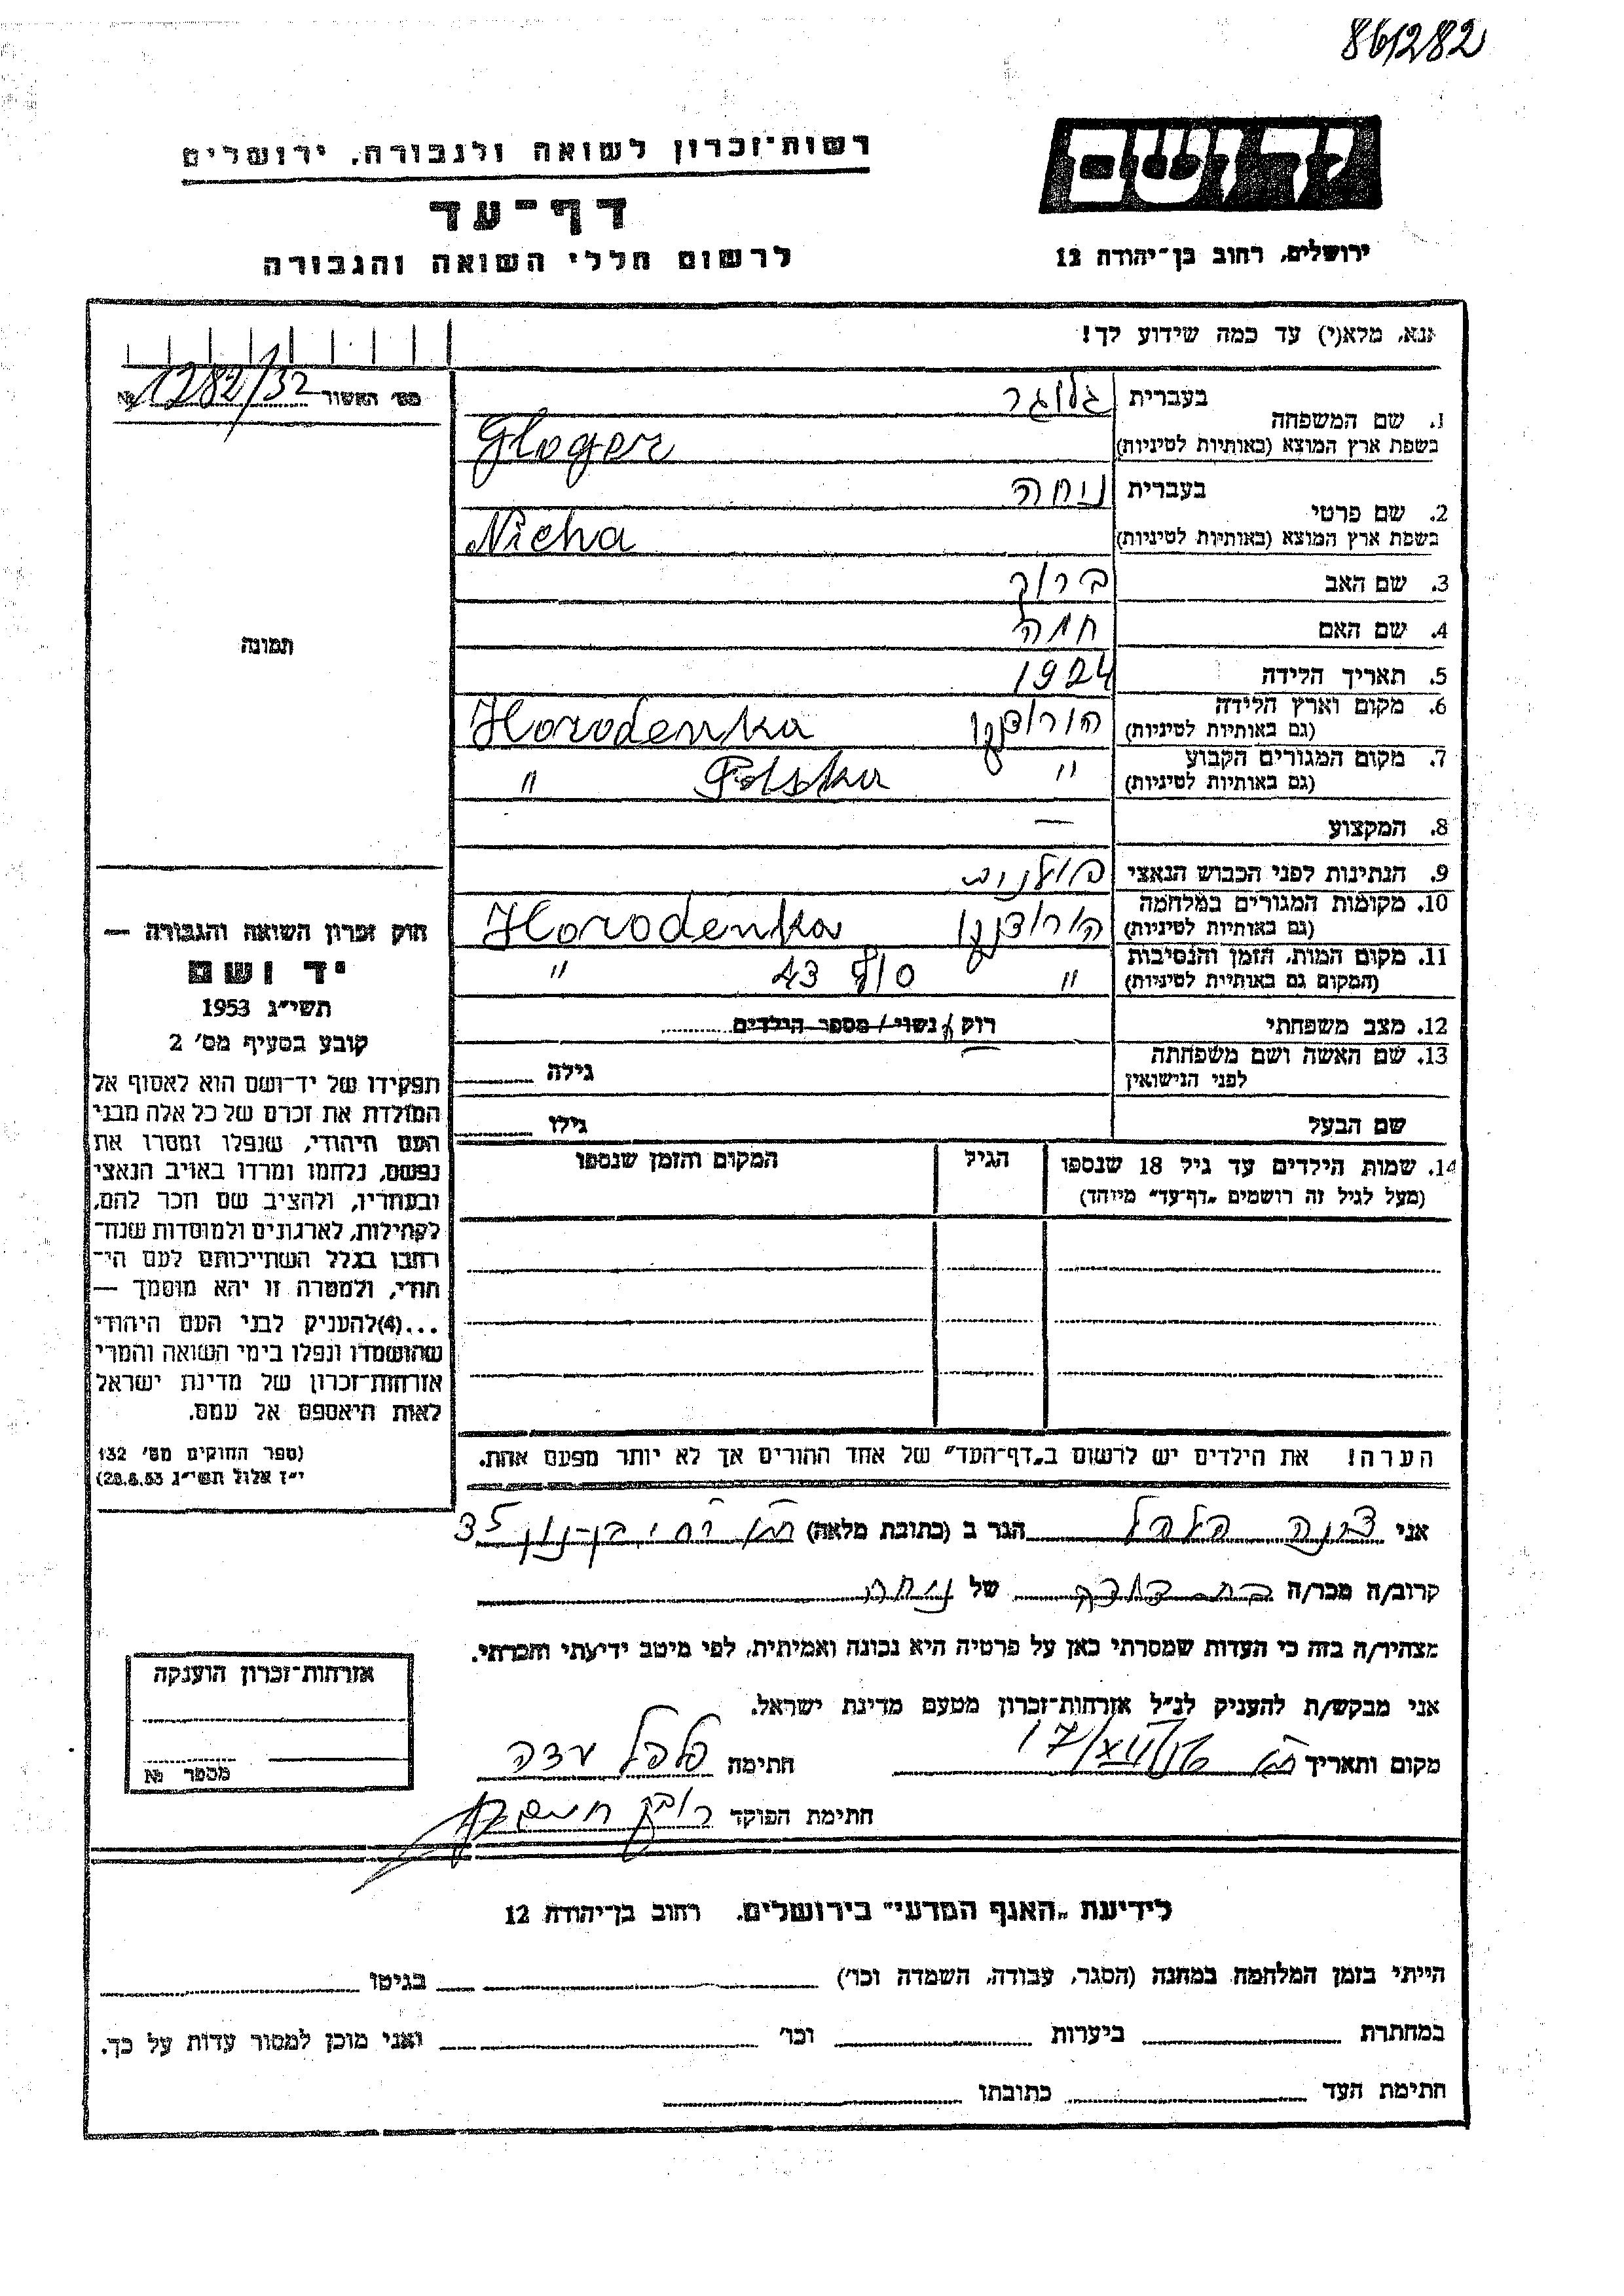 86/282
רשות־זכרון לשואה ולגבורה, ירושלים
דף־עד
לרשום חללי השואה והגבורה
יד ושם
ירושלים, רחוב בן־יהודה 12
אנא, מלא(י) עד כמה שידוע לך!
מס׳ האשור 1282/32 №
1. שם המשפחה
בעברית גלוגר
בשפת ארץ המוצא (באותיות לטיניות) Gloger
2. שם פרטי
בעברית נוחה
בשפת ארץ המוצא (באותיות לטיניות) Nicha
3. שם האב ברוך
4. שם האם חנה
5. תאריך הלידה 1924
6. מקום וארץ הלידה
(גם באותיות לטיניות) הורודנקו Horodenka
7. מקום המגורים הקבוע
(גם באותיות לטיניות) " Polska "
8. המקצוע —
9. הנתינות לפני הכבוש הנאצי פולנית
10. מקומות המגורים במלחמה
(גם באותיות לטיניות) הורודנקו Horodenka
11. מקום המות, הזמן והנסיבות
(המקום גם באותיות לטיניות) " סוף 43 "
12. מצב משפחתי רוק/ה נשוי / מספר הילדים
13. שם האשה ושם משפחתה
לפני הנישואין
גילה
שם הבעל גילו
14. שמות הילדים עד גיל 18 שנספו
(מעל לגיל זה רושמים „דף־עד״ מיוחד)
הגיל
המקום והזמן שנספו
הערה! את הילדים יש לרשום ב„דף־העד״ של אחד ההורים אך לא יותר מפעם אחת.
תמונה
חוק זכרון השואה והגבורה —
יד ושם
תשי״ג 1953
קובע בסעיף מס׳ 2
תפקידו של יד־ושם הוא לאסוף אל
המולדת את זכרם של כל אלה מבני
העם היהודי, שנפלו ומסרו את
נפשם, נלחמו ומרדו באויב הנאצי
ובעוזריו, ולהציב שם וזכר להם,
לקהילות, לארגונים ולמוסדות שנח־
רבו בגלל השתייכותם לעם הי־
הודי, ולמטרה זו יהא מוסמך —
...(4) להעניק לבני העם היהודי
שהושמדו ונפלו בימי השואה והמרי
אזרחות־זכרון של מדינת ישראל
לאות היאספם אל עמם.
(ספר החוקים מס׳ 132
י״ז אלול תשי״ג 28.8.53)
אני הלפל הגר ב (כתובת מלאה) בן־נון 35
קרוב/ה מכר/ה של נוחה
מצהיר/ה בזה כי העדות שמסרתי כאן על פרטיה היא נכונה ואמיתית, לפי מיטב ידיעתי והכרתי.
אני מבקש/ת להעניק לנ״ל אזרחות־זכרון מטעם מדינת ישראל.
מקום ותאריך 17/XII חתימה
חתימת הפוקד
אזרחות־זכרון הוענקה
מספר №
לידיעת „האגף המדעי״ בירושלים, רחוב בן־יהודה 12
הייתי בזמן המלחמה במחנה (הסגר, עבודה, השמדה וכו׳) בגיטו
במחתרת ביערות וכו׳ ואני מוכן למסור עדות על כך.
חתימת העד כתובתו